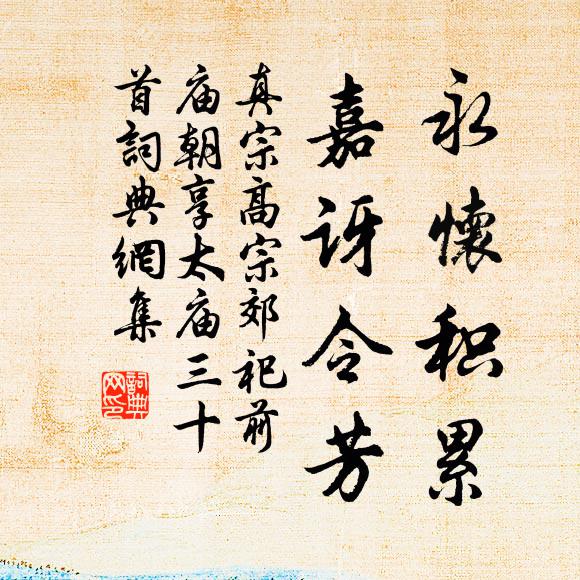 永懷积累
嘉讶令芳
真宗高宗郊祀前
庙朝享太庙三十
首詞典網集
詞典网印